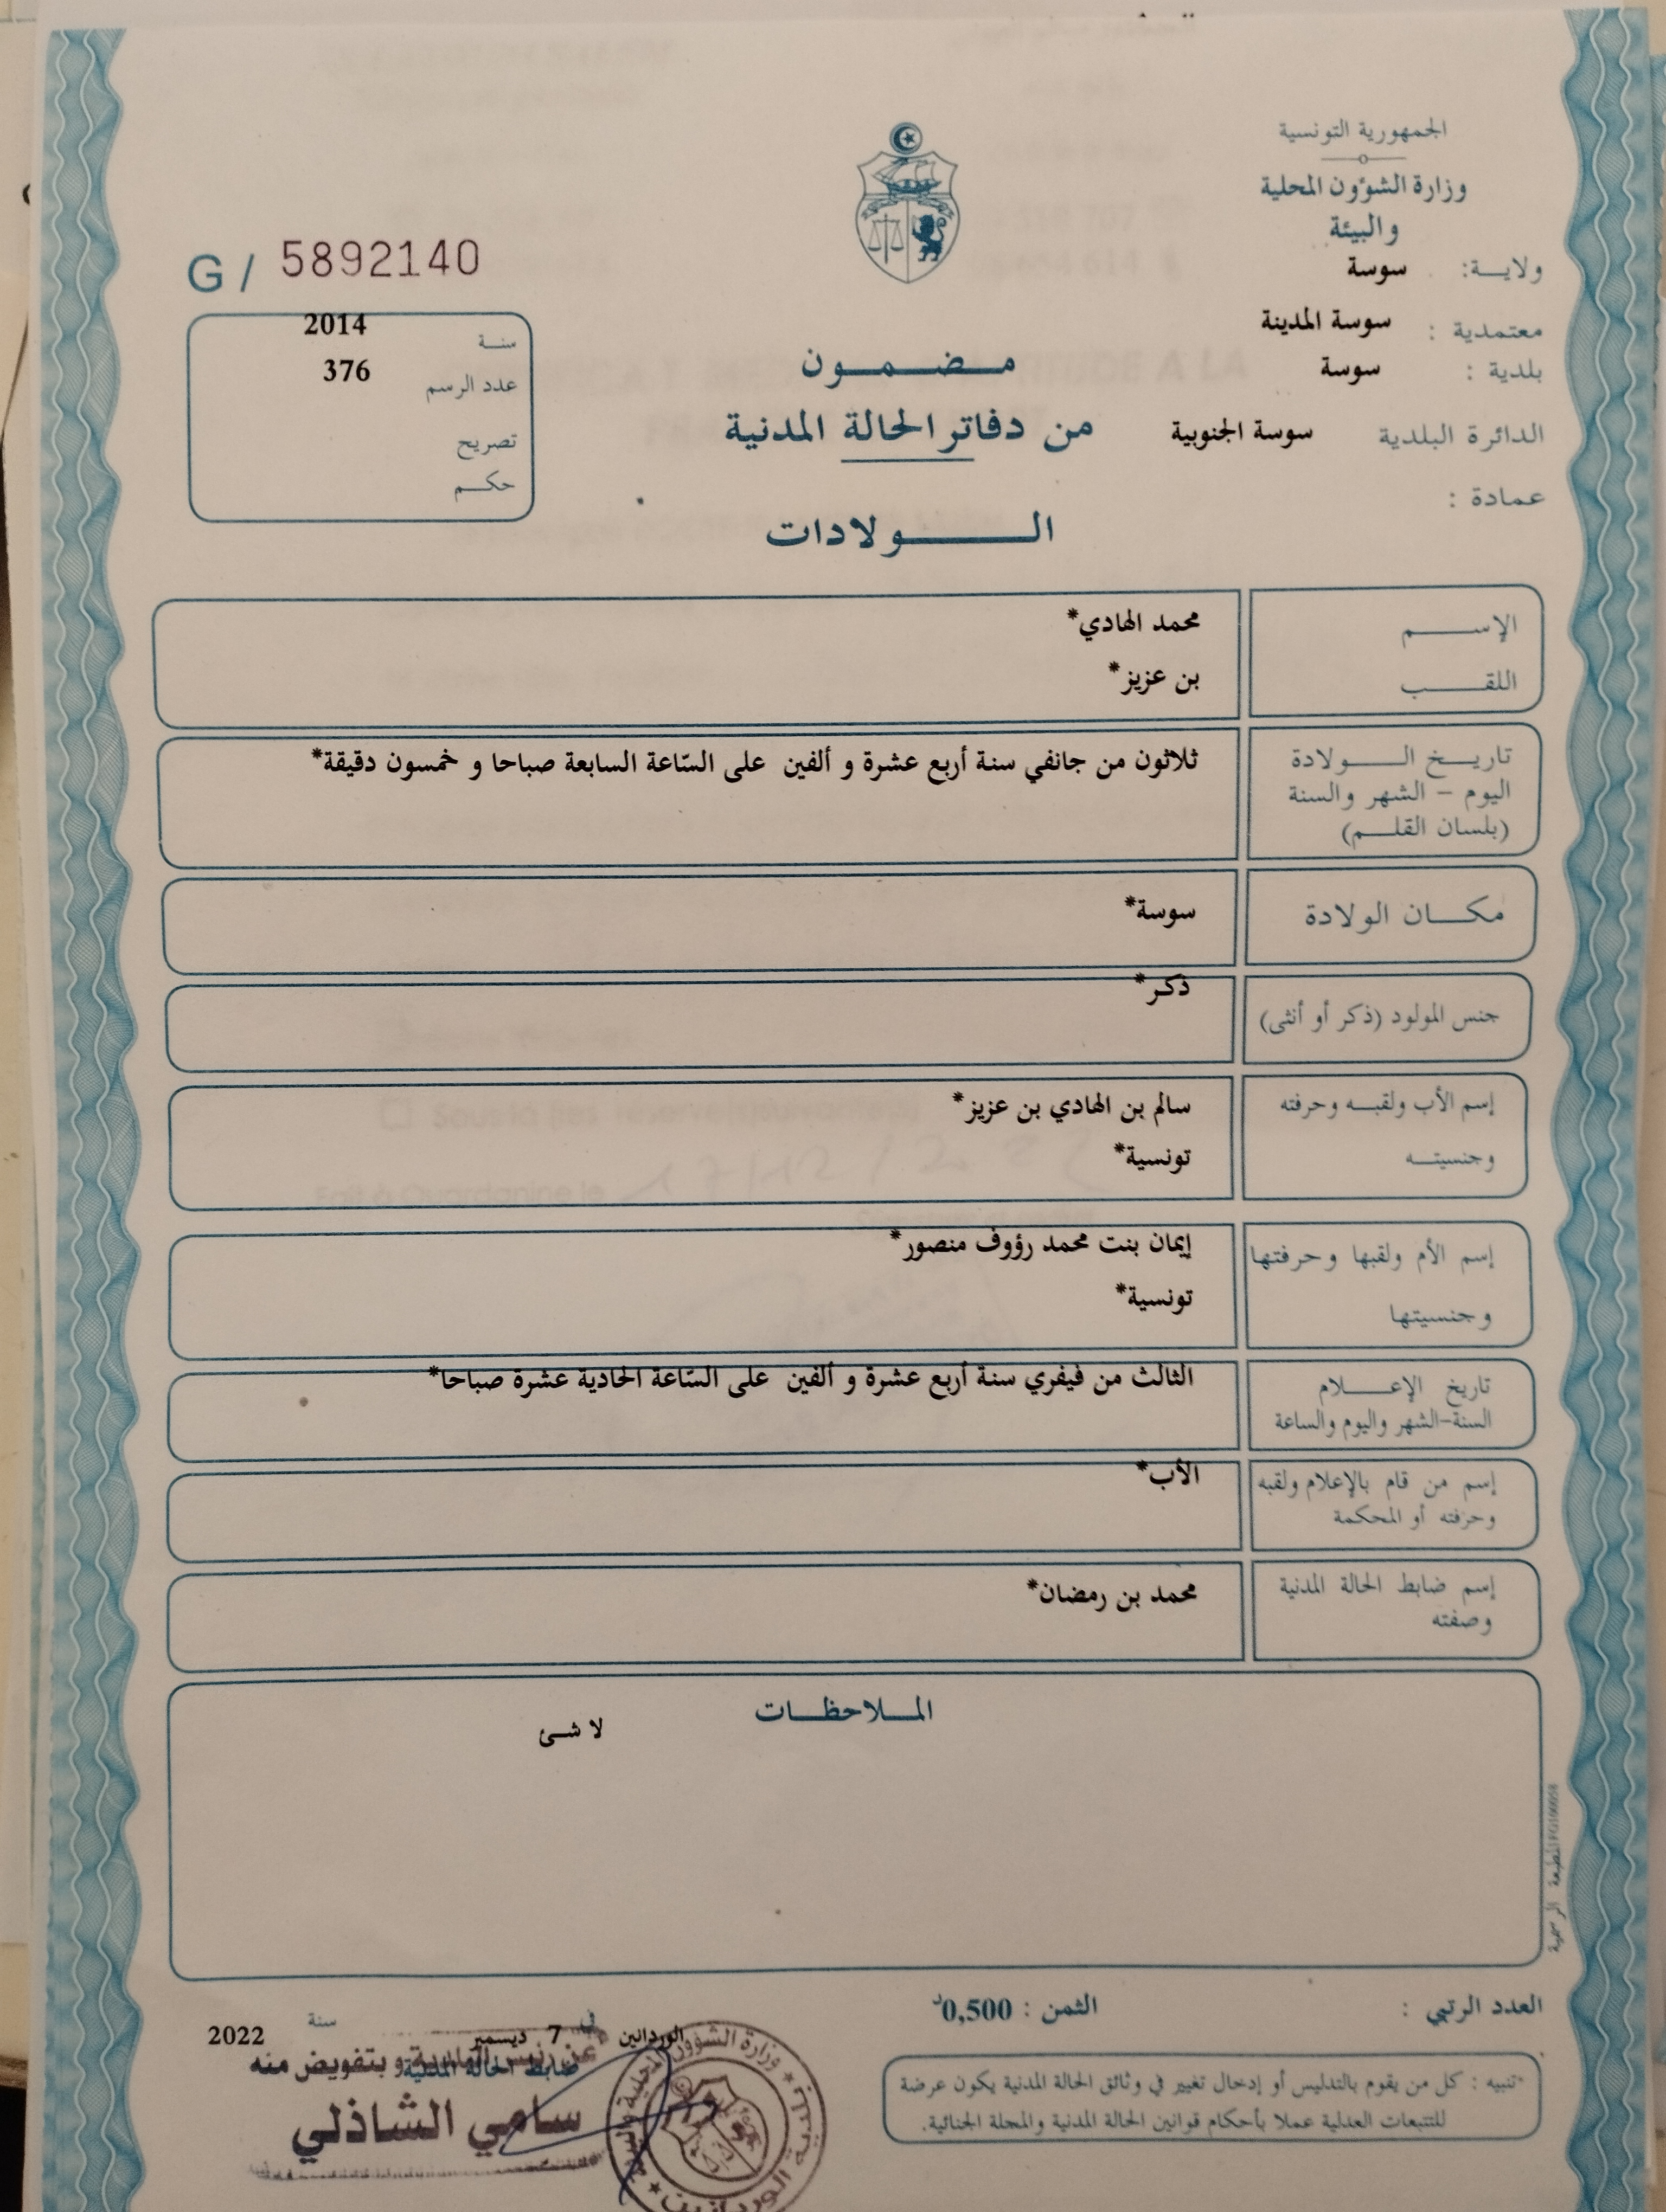 الجمهورية التونسية
وزارة الشؤون المحلية
والبيئة
ولاية: سوسة
معتمدية : سوسة المدينة
بلدية : سوسة
الدائرة البلدية سوسة الجنوبية
عمادة :
G / 5892140
سنة 2014
عدد الرسم 376
تصريح
حكم
مضمون
من دفاتر الحالة المدنية
الولادات
الإسم محمد الهادي*
اللقب بن عزيز*
تاريخ الولادة ثلاثون من جانفي سنة أربع عشرة و ألفين على السّاعة السابعة صباحا و خمسون دقيقة*
اليوم - الشهر والسنة
(بلسان القلم)
مكان الولادة سوسة*
جنس المولود (ذكر أو أنثى) ذكر*
إسم الأب ولقبه وحرفته سالم بن الهادي بن عزيز*
وجنسيته تونسية*
إسم الأم ولقبها وحرفتها إيمان بنت محمد رؤوف منصور*
وجنسيتها تونسية*
تاريخ الإعلام الثالث من فيفري سنة أربع عشرة و ألفين على السّاعة الحادية عشرة صباحا*
السنة-الشهر واليوم والساعة
إسم من قام بالإعلام ولقبه الأب*
وحرفته أو المحكمة
إسم ضابط الحالة المدنية محمد بن رمضان*
وصفته
الملاحظات
لا شئ
المطبعة الرسمية
العدد الرتبي :
الثمن : 0,500د
الوردانين في 7 ديسمبر سنة 2022
ضابط الحالة المدنية
عن رئيس البلدية و بتفويض منه
سامي الشاذلي
تنبيه : كل من يقوم بالتدليس أو إدخال تغيير في وثائق الحالة المدنية يكون عرضة
للتتبعات العدلية عملا بأحكام قوانين الحالة المدنية والمجلة الجنائية.